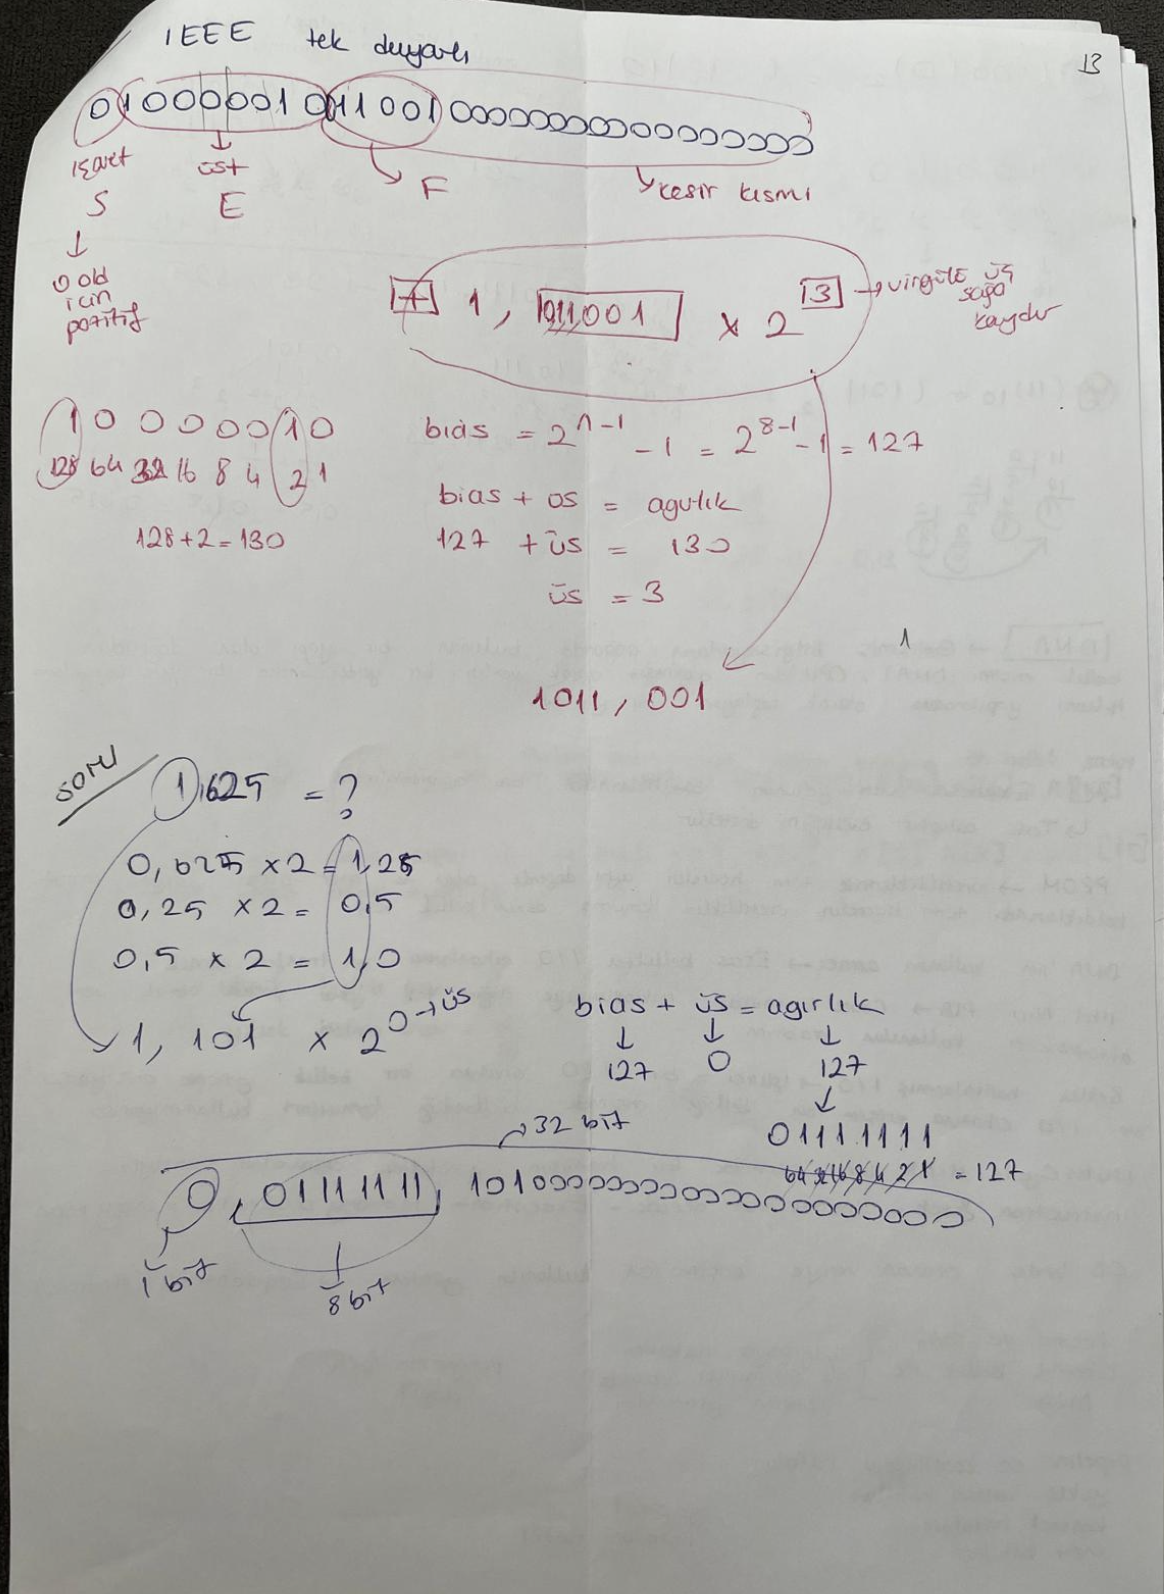 IEEE tek duyarlı
13
0 10000010 011001 00000000000000000
işaret
S
üst
E
F
kesir kısmı
0 old
için
pozitif
+ 1, 011001 x 2 3 → virgülü üç
sağa
kaydır
1 0 0 0 0 0 1 0
128 64 32 16 8 4 2 1
128+2=130
bias = 2^n-1 - 1 = 2^8-1 - 1 = 127
bias + üs = agırlık
127 + üs = 130
üs = 3
1
1011, 001
SORU
1,625 = ?
0,625 x 2 = 1,25
0,25 x 2 = 0,5
0,5 x 2 = 1,0
1, 101 x 2^0 → üs
bias + üs = agırlık
127 0 127
01111111
64 32 16 8 4 2 1 = 127
32 bit
0, 01111111, 10100000000000000000000
1 bit
8 bit